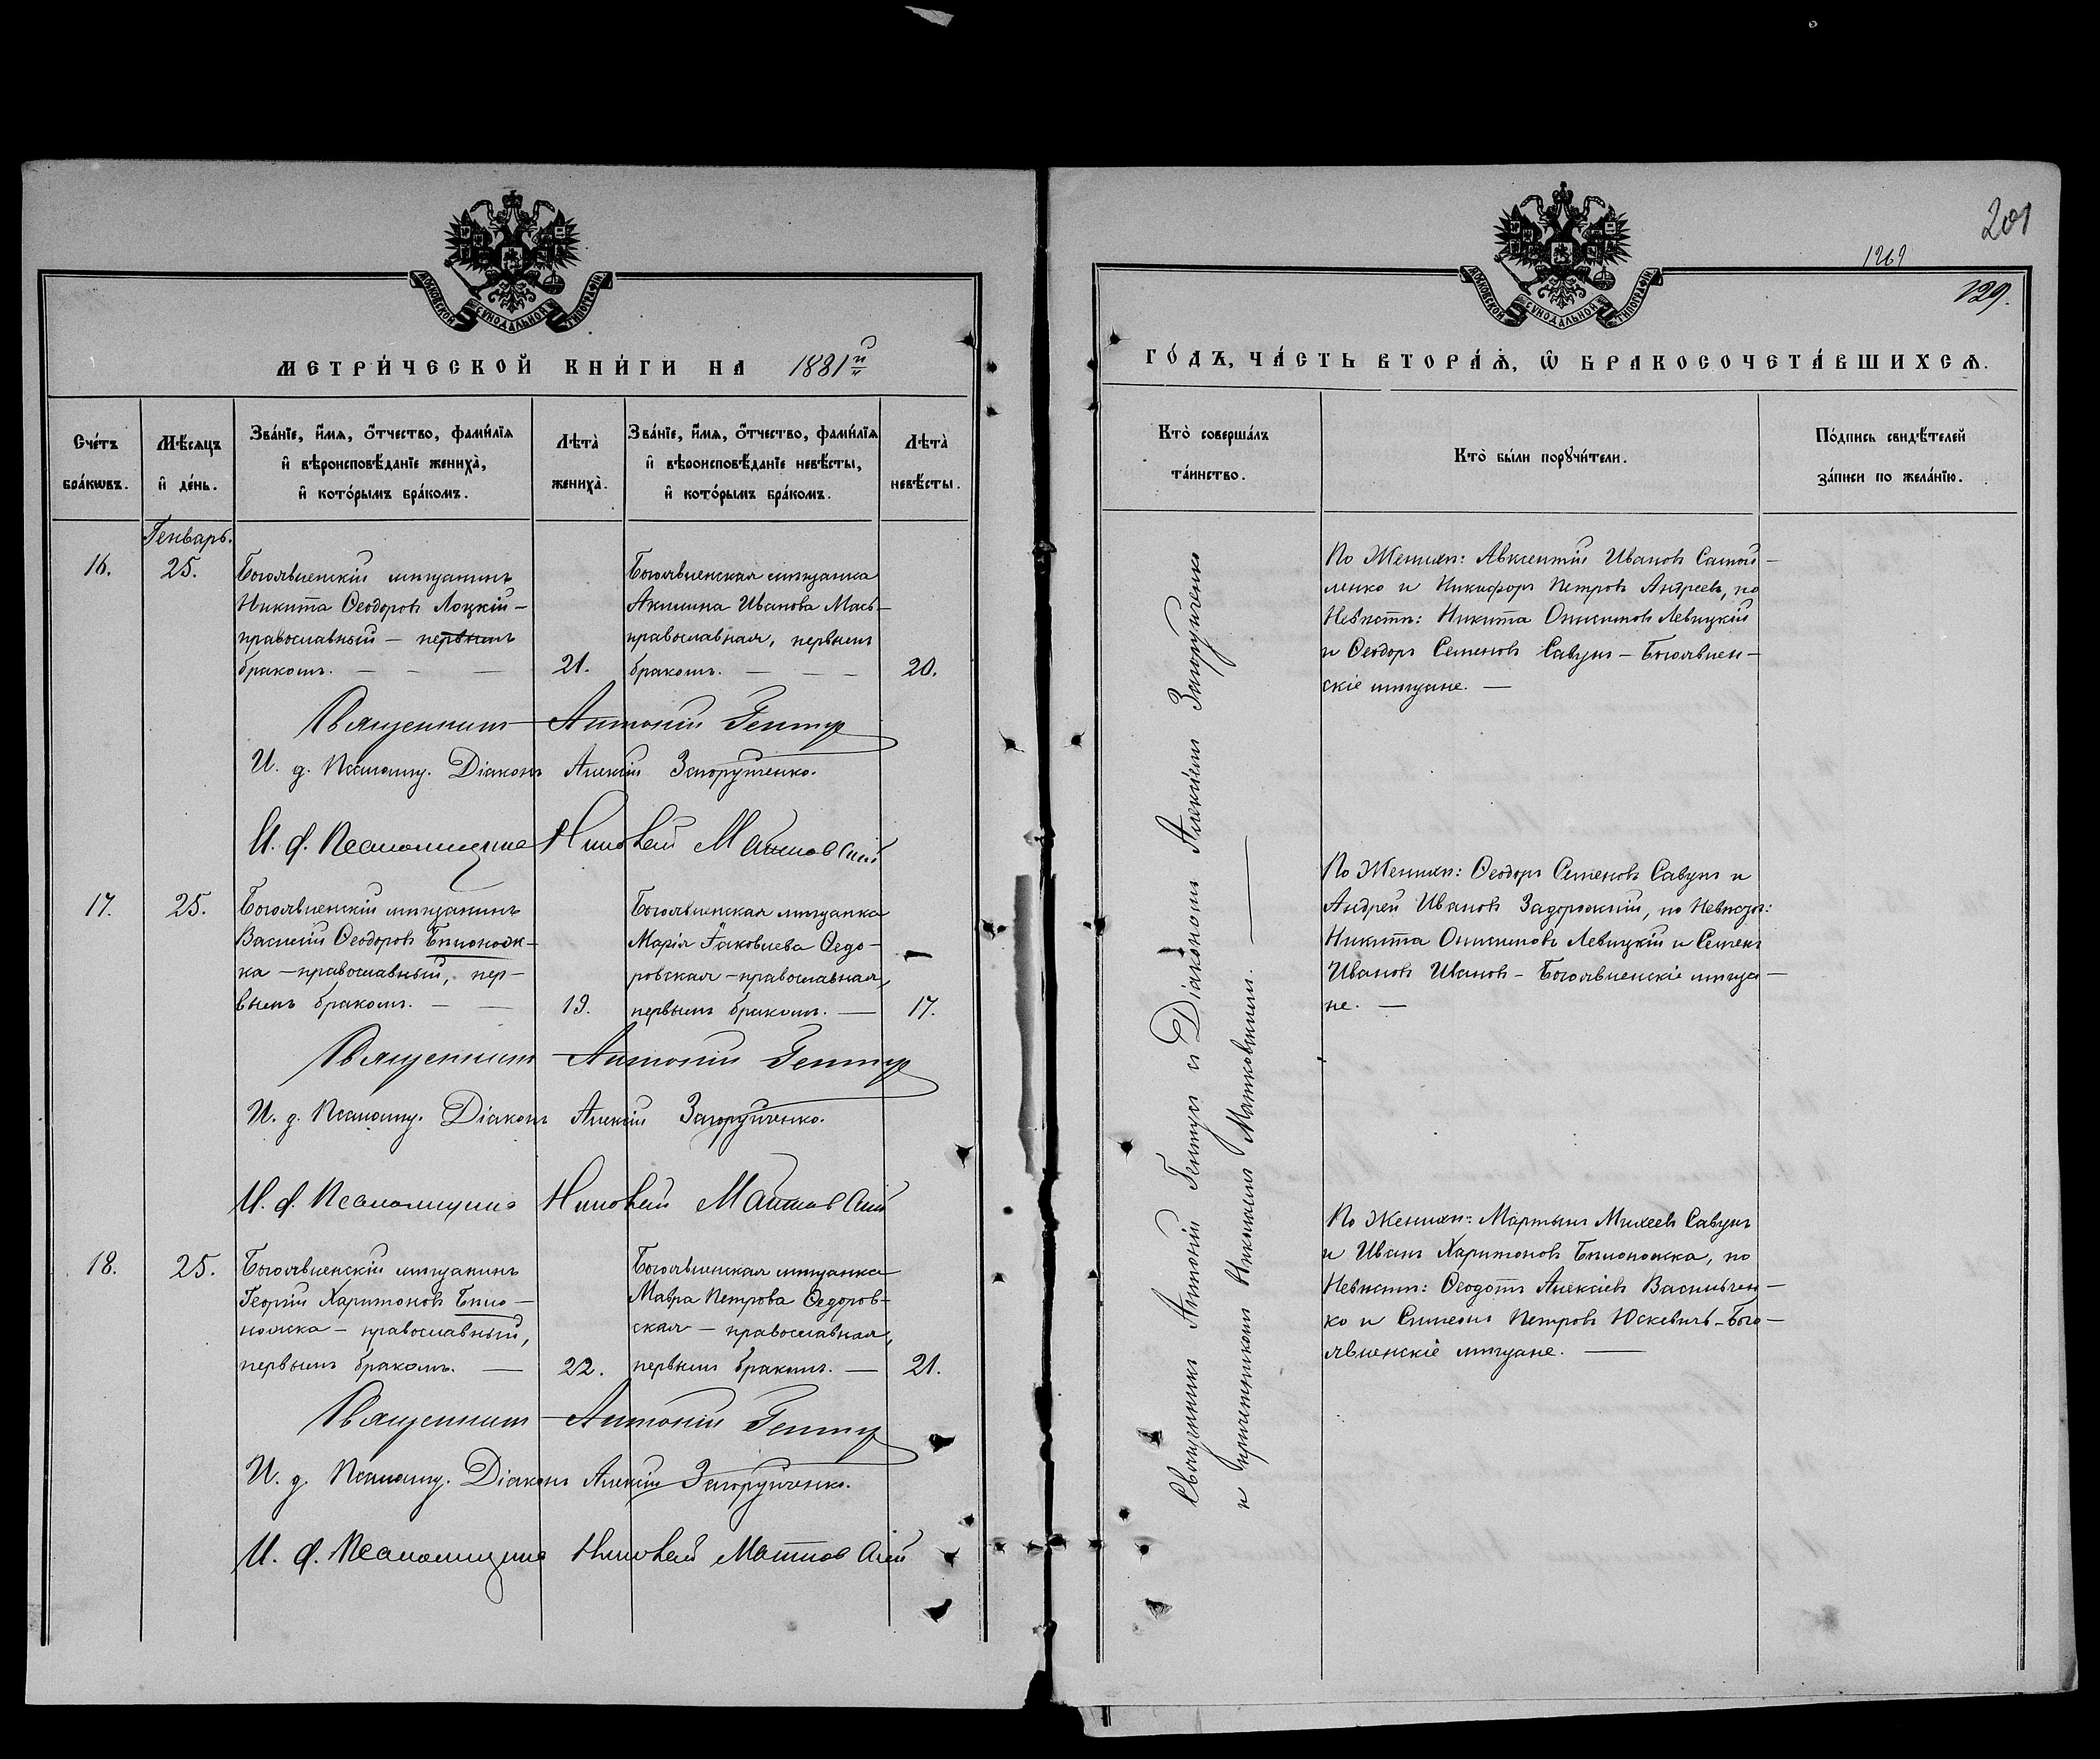 МОСКОВСКОЙ СѴНОДАЛЬНОЙ ТИПОГРАФІИ
МЕТРИ́ЧЕСКОЙ КНИ́ГИ НА 1881й
Сче́тъ бра́кѡвъ.
Мѣ́сѧцъ и҆ де́нь.
Зва́нїе, и҆́мѧ, ѻ҆́тчество, фами́лїѧ
и҆ вѣроисповѣ́данїе жениха̀,
и҆ кото́рымъ бра́комъ.
Лѣта̀ жениха̀.
Зва́нїе, и҆́мѧ, ѻ҆́тчество, фами́лїѧ
и҆ вѣроисповѣ́данїе невѣ́сты,
и҆ кото́рымъ бра́комъ.
Лѣта̀ невѣ́сты.
Генварь.
16.
25.
Богоявленскій мѣщанинъ
Никита Ѳеодоровъ Лоцкій –
православный – первымъ
бракомъ. – – –
21.
Богоявленская мѣщанка
Акилина Иванова Мась –
православная, первымъ
бракомъ. – – –
20.
Священникъ Антоній Гептур
И. д. Псаломщ. Діаконъ Алексій Загорульченко.
И. д. Псаломщика Николай Матковскій
17.
25.
Богоявленскій мѣщанинъ
Василій Ѳеодоровъ Бѣлонож-
ка – православный, пер-
вымъ бракомъ. – –
19.
Богоявленская мѣщанка
Марія Іаковлева Ѳедо-
ровская – православная,
первымъ бракомъ. –
17.
Священникъ Антоній Гептур
И. д. Псаломщ. Діаконъ Алексій Загорульченко.
И. д. Псаломщика Николай Матковскій
18.
25.
Богоявленскій мѣщанинъ
Георгій Харитоновъ Бѣло-
ножка – православный,
первымъ бракомъ. –
22.
Богоявленская мѣщанка
Мавра Петрова Ѳедоров-
ская – православная,
первымъ бракомъ. –
21.
Священникъ Антоній Гептур
И. д. Псаломщ. Діаконъ Алексій Загорульченко.
И. д. Псаломщика Николай Матковскій
201
1269
129.
МОСКОВСКОЙ СѴНОДАЛЬНОЙ ТИПОГРАФІИ
ГО́ДЪ, ЧА́СТЬ ВТОРА́Ѧ, Ѡ҆ БРАКОСОЧЕТА́ВШИХСѦ.
Кто̀ соверша́лъ
та́инство.
Кто̀ бы́ли порꙋчи́тели.
По́дпись свидѣ́телей
за́писи по жела́нїю.
Священникъ Антоній Гептур и Діакономъ Алексіем Загорульченко
и причетникомъ Николаемъ Матковскимъ.
По Женихѣ: Авксентій Ивановъ Самой –
ленко и Никифоръ Петровъ Андреевъ, по
Невѣстѣ: Никита Онисимовъ Левицкій
и Ѳеодоръ Семеновъ Савукъ – Богоявлен –
скіе мѣщане. –
По Женихѣ: Ѳеодоръ Семеновъ Савукъ и
Андрей Ивановъ Задорожній, по Невѣстѣ:
Никита Онисимовъ Левицкій и Семенъ
Ивановъ Ивановъ – Богоявленскіе мѣща –
не. –
По Женихѣ: Мартынъ Михеевъ Савукъ
и Иванъ Харитоновъ Бѣлоножка, по
Невѣстѣ: Ѳеодотъ Алексіевъ Васильчен –
ко и Симеонъ Петровъ Юскевичъ – Бого –
явленскіе мѣщане. –